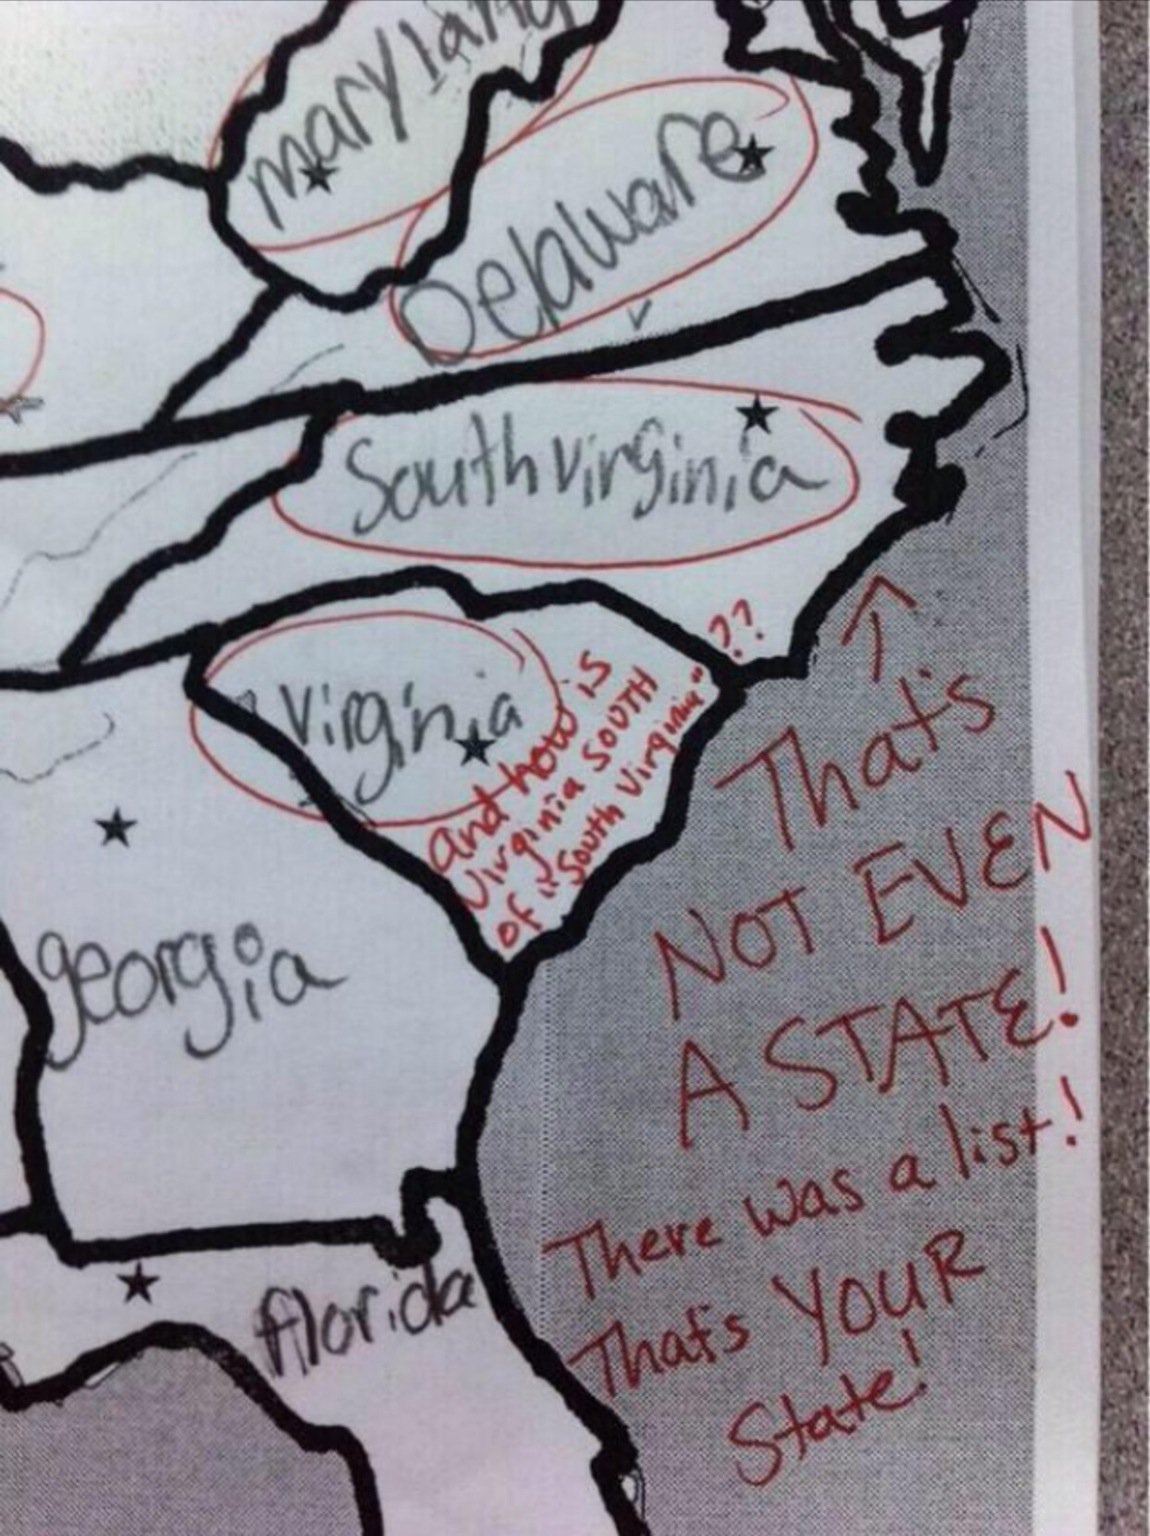 maryland
Delaware
Southvirginia
virginia
and how is
Virginia SOUTH
of "South Virginia" ??
georgia
florida
That's
NOT EVEN
A STATE!
There was a list!
That's YOUR
State!